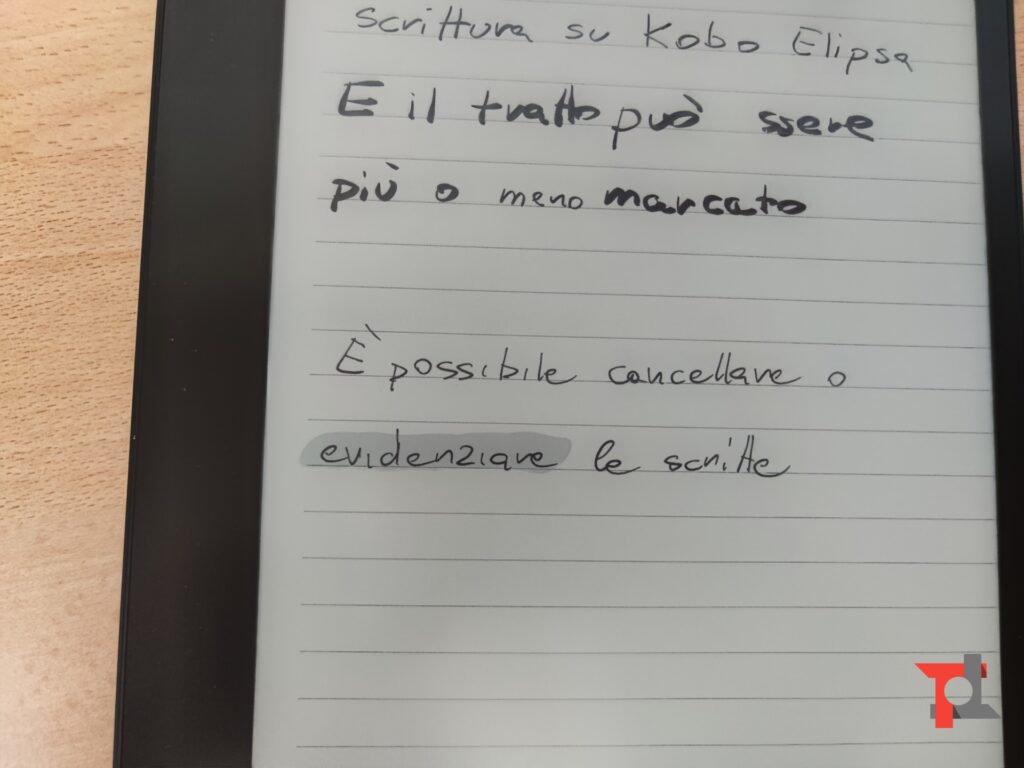 scrittura su Kobo Elipsa
E il tratto può ssere
più o meno marcato
È possibile cancellare o
evidenziare le scritte